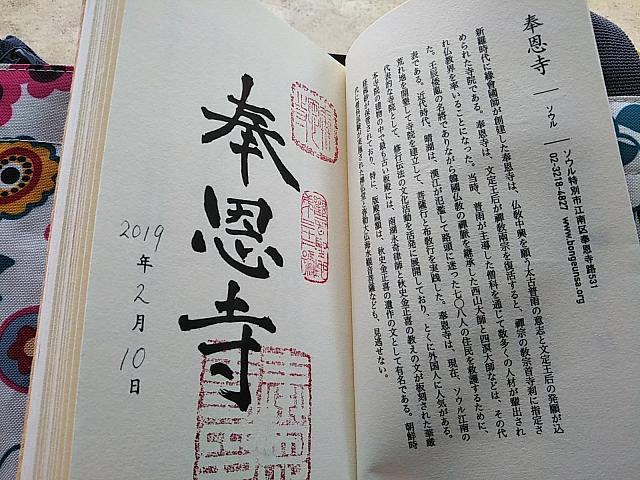 奉恩寺 ― ソウル ― ソウル特別市江南区奉恩寺路531
02-3218-4827 www.bongeunsa.org
新羅時代に緣會國師が創建した奉恩寺は、仏教中興を願う太古普雨の意志と文定王后の発願が込
められた寺院である。奉恩寺は、文定王后が禪教兩宗を復活すると、禪宗の教宗首寺刹に指定さ
れ仏教界を率いることになった。当時、普雨が主導した僧科を通じて数多くの人材が輩出され
た。壬辰倭亂の名将でありながら韓國仏教の禪脈を継承した西山大師と四溟大師などは、その代
表である。近代時代、晴湖は、漢江が氾濫して路頭に迷った七〇八人の住民を救護するために、
荒れ地を開墾して寺院を建立して、菩薩行と布教行を実践した。奉恩寺は、現在、ソウル江南の
代表的な寺院として、修行伝法の文化活動を活発に展開しており、とくに外国人に人気がある。
本寺院の建物の中で最も古い板殿には、南湖永奇律師と秋史金正喜の教えの文が板刻された華厳
経板が保管されており、特に、板殿扁額は、秋史金正喜の遺作の文として有名である。朝鮮時
代に僧科試験が実施された禪佛堂と大仏海水観音菩薩なども、見逃せない。
奉恩寺
2019年2月10日